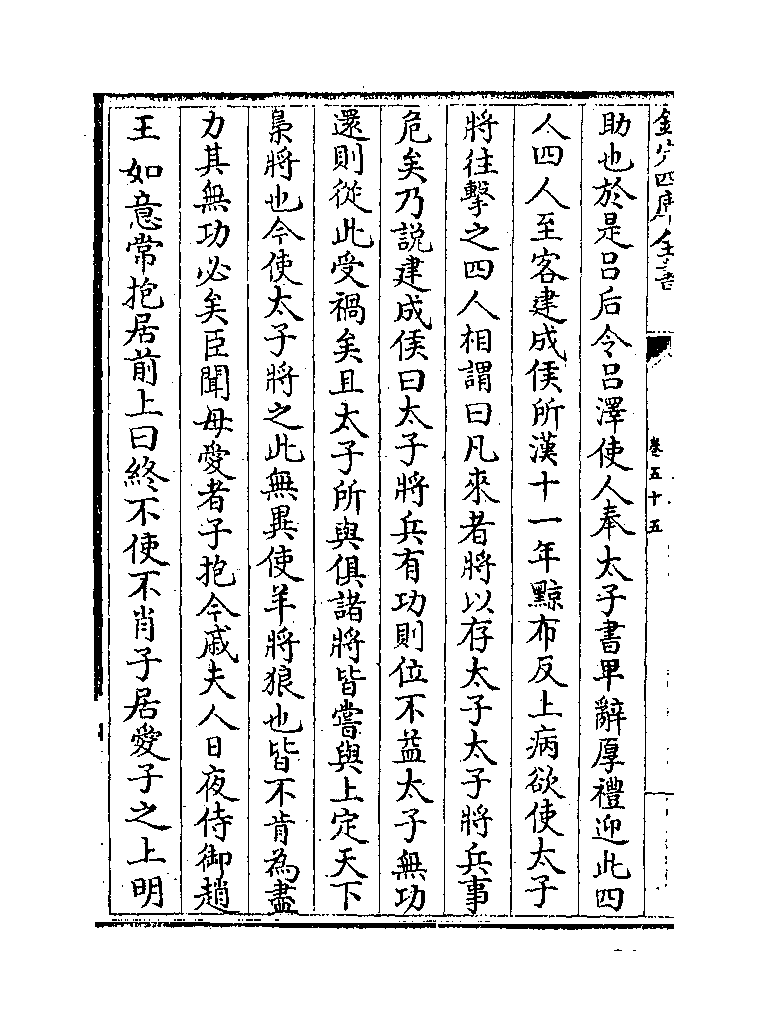 欽定四庫全書
卷五十五
助也於是吕后令吕澤使人奉太子書卑辭厚禮迎此四
人四人至客建成侯所漢十一年黥布反上病欲使太子
將往擊之四人相謂曰凡來者將以存太子太子將兵事
危矣乃説建成侯曰太子將兵有功則位不益太子無功
還則從此受禍矣且太子所與俱諸將皆嘗與上定天下
梟將也今使太子將之此無異使羊將狼也皆不肯為盡
力其無功必矣臣聞母愛者子抱今戚夫人日夜侍御趙
王如意常抱居前上曰終不使不肖子居愛子之上明